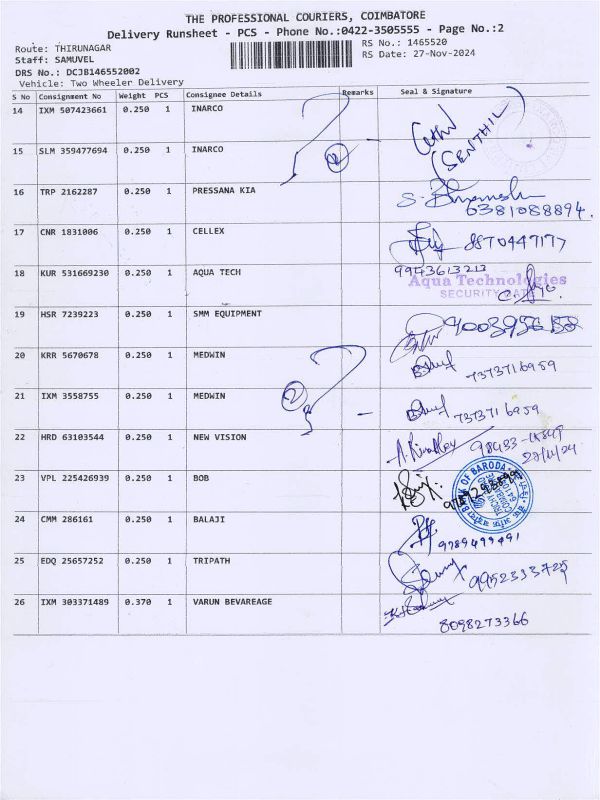 THE PROFESSIONAL COURIERS, COIMBATORE
Delivery Runsheet - PCS - Phone No.:0422-3505555 - Page No.:2
Route: THIRUNAGAR
RS No.: 1465520
Staff: SAMUVEL
RS Date: 27-Nov-2024
DRS No.: DCJB146552002
Vehicle: Two Wheeler Delivery
S No Consignment No Weight PCS Consignee Details Remarks Seal & Signature
14 IXM 507423661 0.250 1 INARCO
(SENTHIL)
15 SLM 359477694 0.250 1 INARCO
16 TRP 2162287 0.250 1 PRESSANA KIA
6381088894.
17 CNR 1831006 0.250 1 CELLEX 8870447177
18 KUR 531669230 0.250 1 AQUA TECH 9943613213
Aqua Technologies
SECURITY GATE
19 HSR 7239223 0.250 1 SMM EQUIPMENT
20 KRR 5670678 0.250 1 MEDWIN 7373716959
21 IXM 3558755 0.250 1 MEDWIN 7373716959
22 HRD 63103544 0.250 1 NEW VISION
27/11/24
23 VPL 225426939 0.250 1 BOB
BANK OF BARODA
24 CMM 286161 0.250 1 BALAJI
9789499491
25 EDQ 25657252 0.250 1 TRIPATH 9952333725
26 IXM 303371489 0.370 1 VARUN BEVAREAGE
8098273366